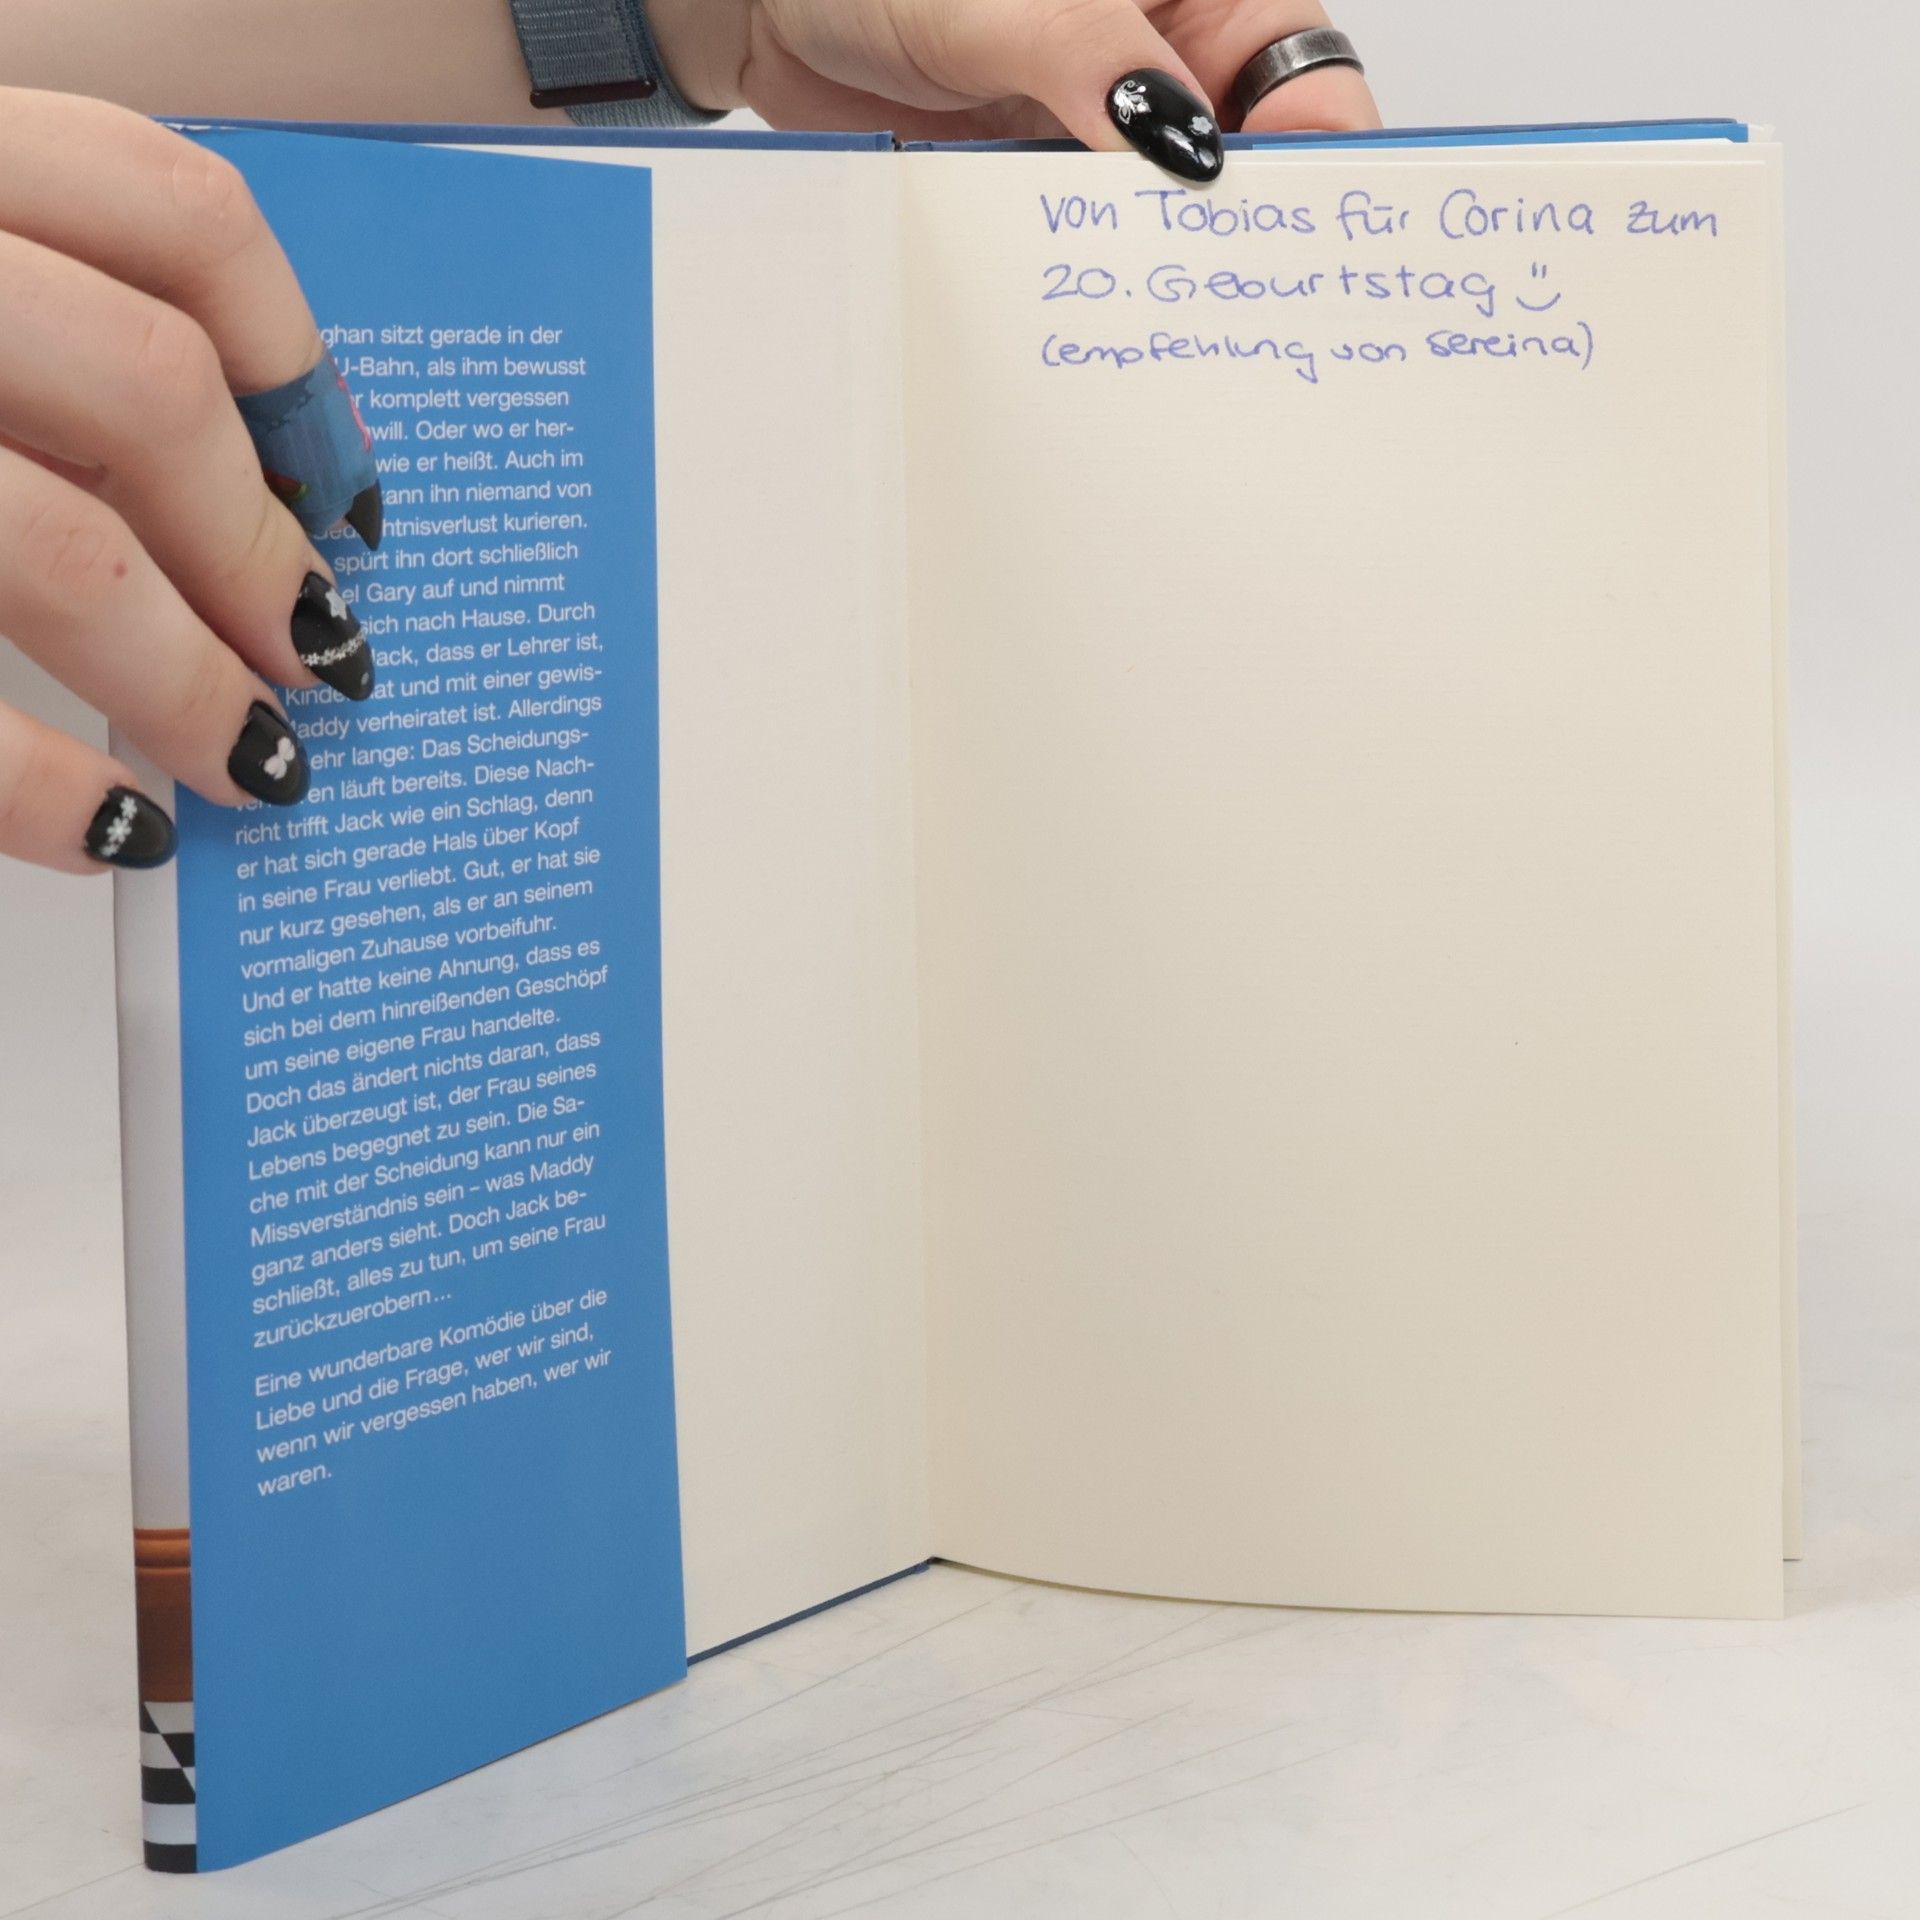 sitzt gerade in der
U-Bahn, als ihm bewusst
komplett vergessen
will. Oder wo er her-
wie er heißt. Auch im
ihn niemand von
kurieren.
spürt ihn dort schließlich
Gary auf und nimmt
sich nach Hause. Durch
Jack, dass er Lehrer ist,
und mit einer gewis-
Maddy verheiratet ist. Allerdings
lange: Das Scheidungs-
läuft bereits. Diese Nach-
richt trifft Jack wie ein Schlag, denn
er hat sich gerade Hals über Kopf
in seine Frau verliebt. Gut, er hat sie
nur kurz gesehen, als er an seinem
vormaligen Zuhause vorbeifuhr.
Und er hatte keine Ahnung, dass es
sich bei dem hinreißenden Geschöpf
um seine eigene Frau handelte.
Doch das ändert nichts daran, dass
Jack überzeugt ist, der Frau seines
Lebens begegnet zu sein. Die Sa-
che mit der Scheidung kann nur ein
Missverständnis sein – was Maddy
ganz anders sieht. Doch Jack be-
schließt, alles zu tun, um seine Frau
zurückzuerobern...
Eine wunderbare Komödie über die
Liebe und die Frage, wer wir sind,
wenn wir vergessen haben, wer wir
waren.
von Tobias für Corina zum
20. Geburtstag
(empfehlung von Sereina)